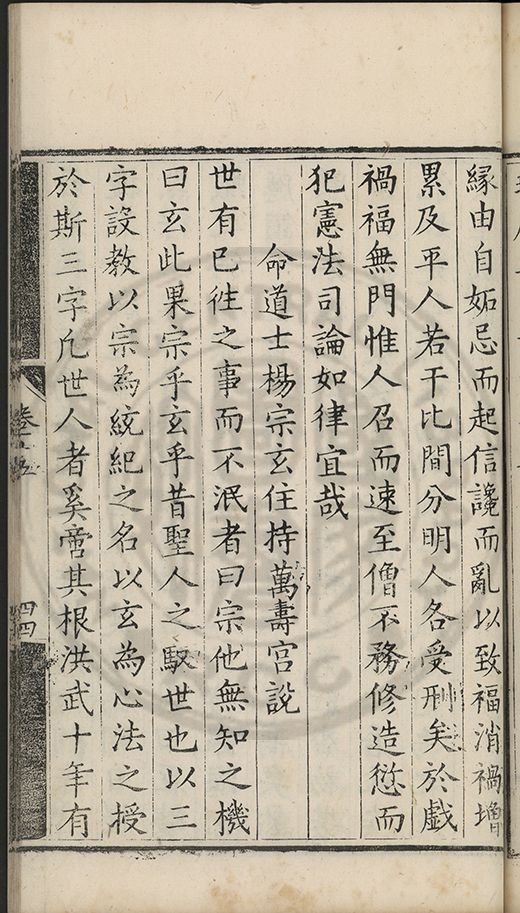 縁由自妬忌而起信讒而亂以致福消禍增
累及平人若干比間分明人各受刑矣於戲
禍福無門惟人召而速至僧不務修造愆而
犯憲法司論如律宜哉
命道士楊宗玄住持萬壽宮說
世有已徃之事而不泯者曰宗他無知之機
曰玄此果宗乎玄乎昔聖人之馭世也以三
字設教以宗為統紀之名以玄為心法之授
於斯三字凡世人者奚啻其根洪武十年有
卷十五
四四